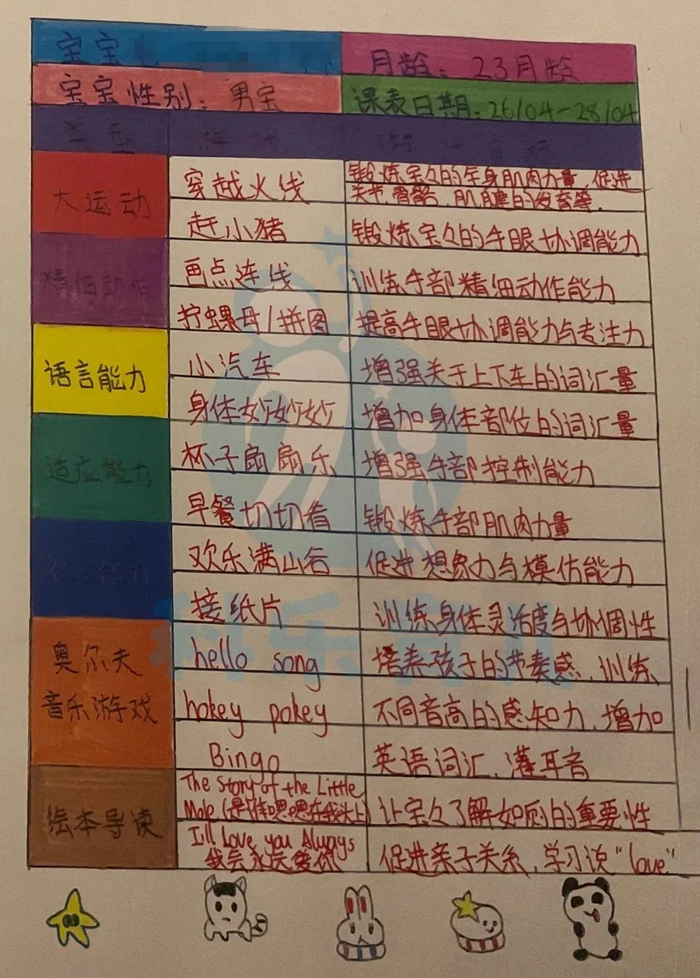 宝宝
月龄：23月龄
宝宝性别：男宝
课表日期：26/04-28/04
类型
大运动
穿越火线
锻炼宝々的全身肌肉力量，促进
关节、骨骼、肌腱的发育等.
赶小猪
锻炼宝々的手眼协调能力
精细动作
画点连线
训练手部精细动作能力
拧螺母/拼图
提高手眼协调能力与专注力
语言能力
小汽车
增强关于上下车的词汇量
身体妙妙妙
增加身体部位的词汇量
适应能力
杯子扇扇乐
增强手部控制能力
早餐切切看
锻炼手部肌肉力量
欢乐满山谷
促进想象力与模仿能力
接纸片
训练身体灵活度与协调性
奥尔夫
音乐游戏
hello song
培养孩子的节奏感，训练
hokey pokey
不同音高的感知力，增加
Bingo
英语词汇，灌耳音
绘本导读
The Story of the Little
Mole (是谁嗯嗯在我头上)
让宝々了解如厕的重要性
I'll Love you Always
我会永远爱你
促进亲子关系，学习说"love"
科乐